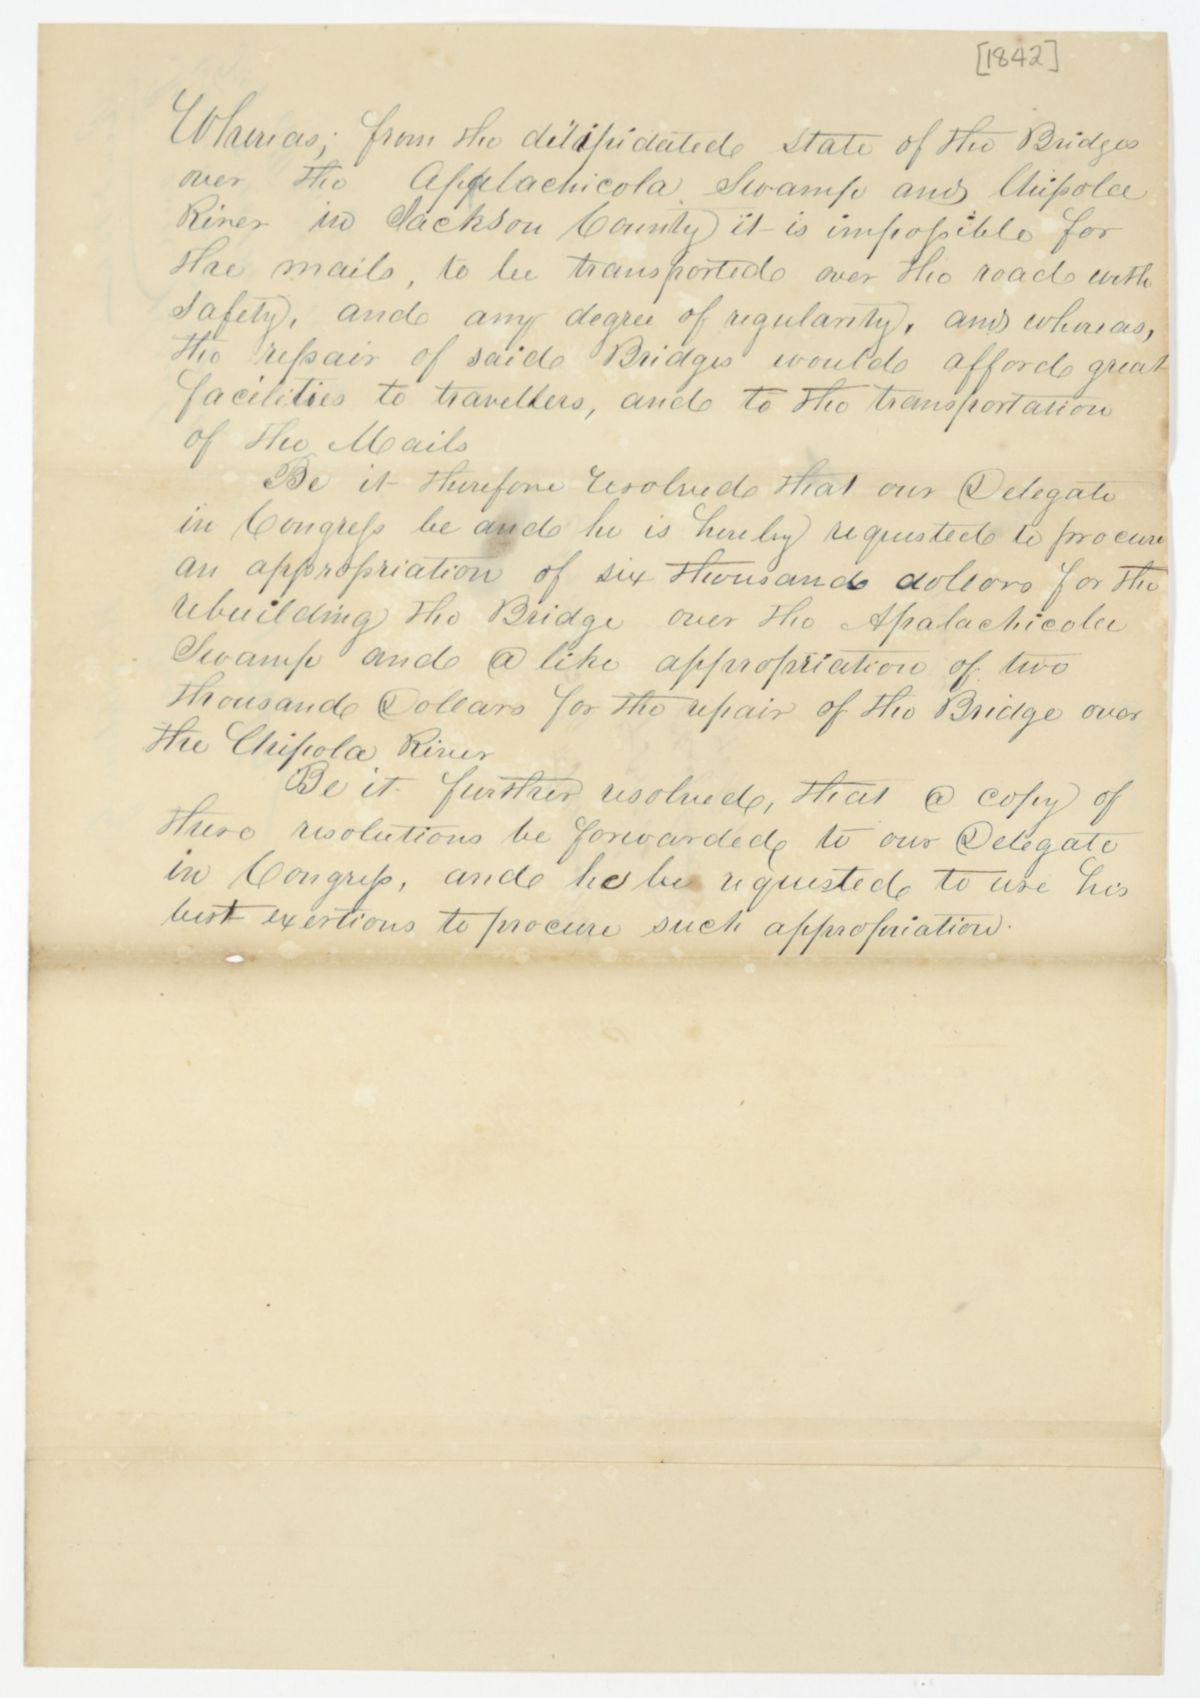 [1842]
Whereas; from the dilipidated state of the Bridges
over the Appalachicola Swamp and Chipola
River in Jackson County it is impossible for
the mails, to be transported over the road with
safety, and any degree of regularity, and whereas,
the repair of said Bridges would afford great
facilities to travellers, and to the transportation
of the Mails
Be it therefore resolved that our Delegate
in Congress be and he is hereby requested to procure
an appropriation of six thousand dollars for the
rebuilding the Bridge over the Apalachicola
Swamp and a like appropriation of two
thousand Dollars for the repair of the Bridge over
the Chipola River
Be it further resolved, that a copy of
these resolutions be forwarded to our Delegate
in Congress, and he be requested to use his
best exertions to procure such appropriation.